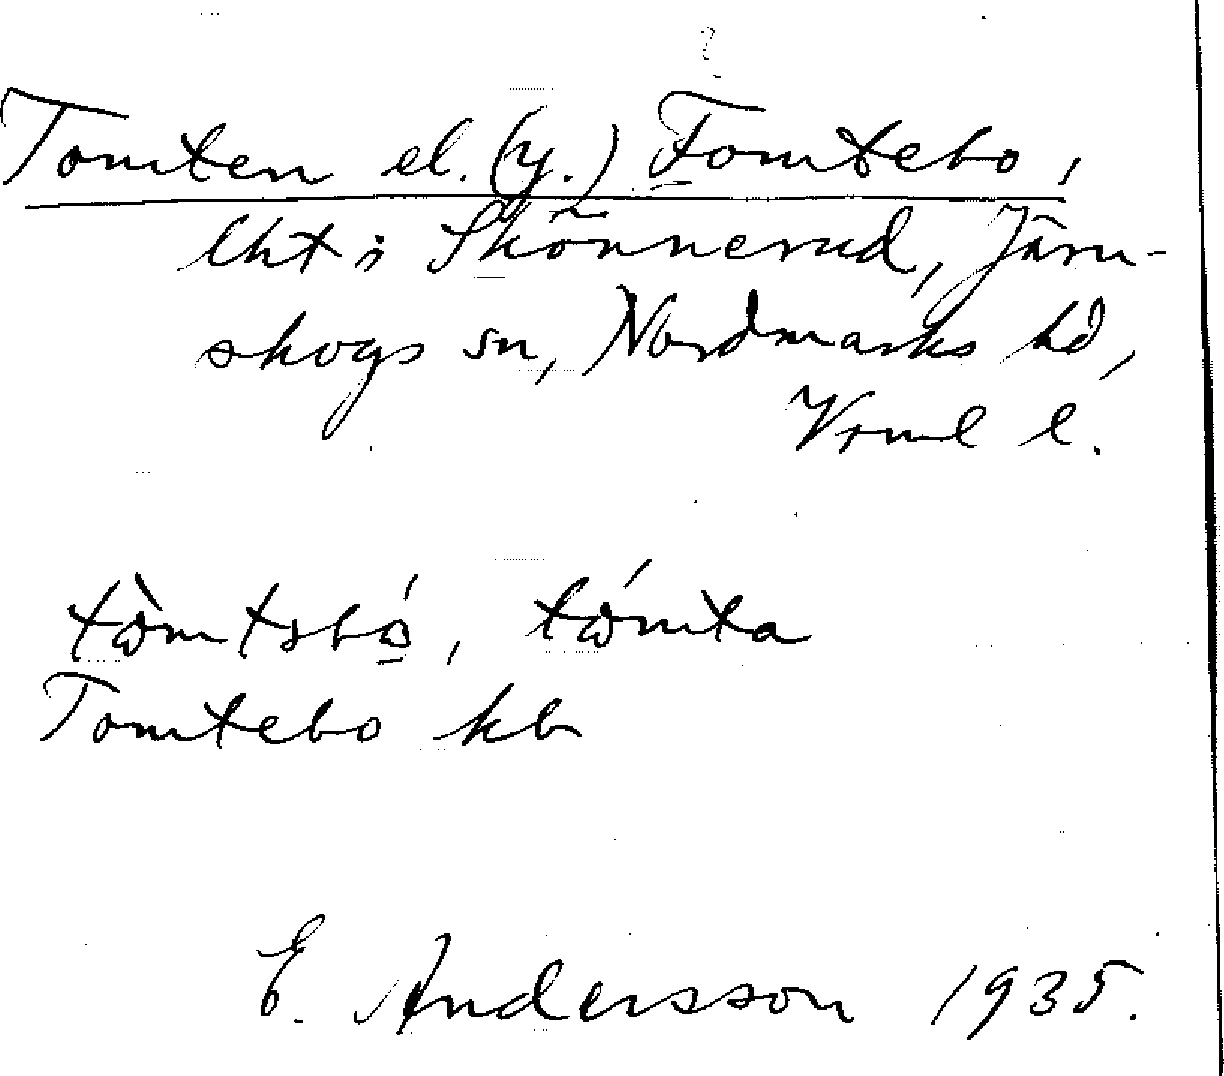 Tomten el. (y.) Tomtebo,
lht i Skönnerud, Järn-
skogs sn, Nordmarks hd,
Vrml l.
tòmtsbó, tómta
Tomtebo kb
E. Andersson 1935.